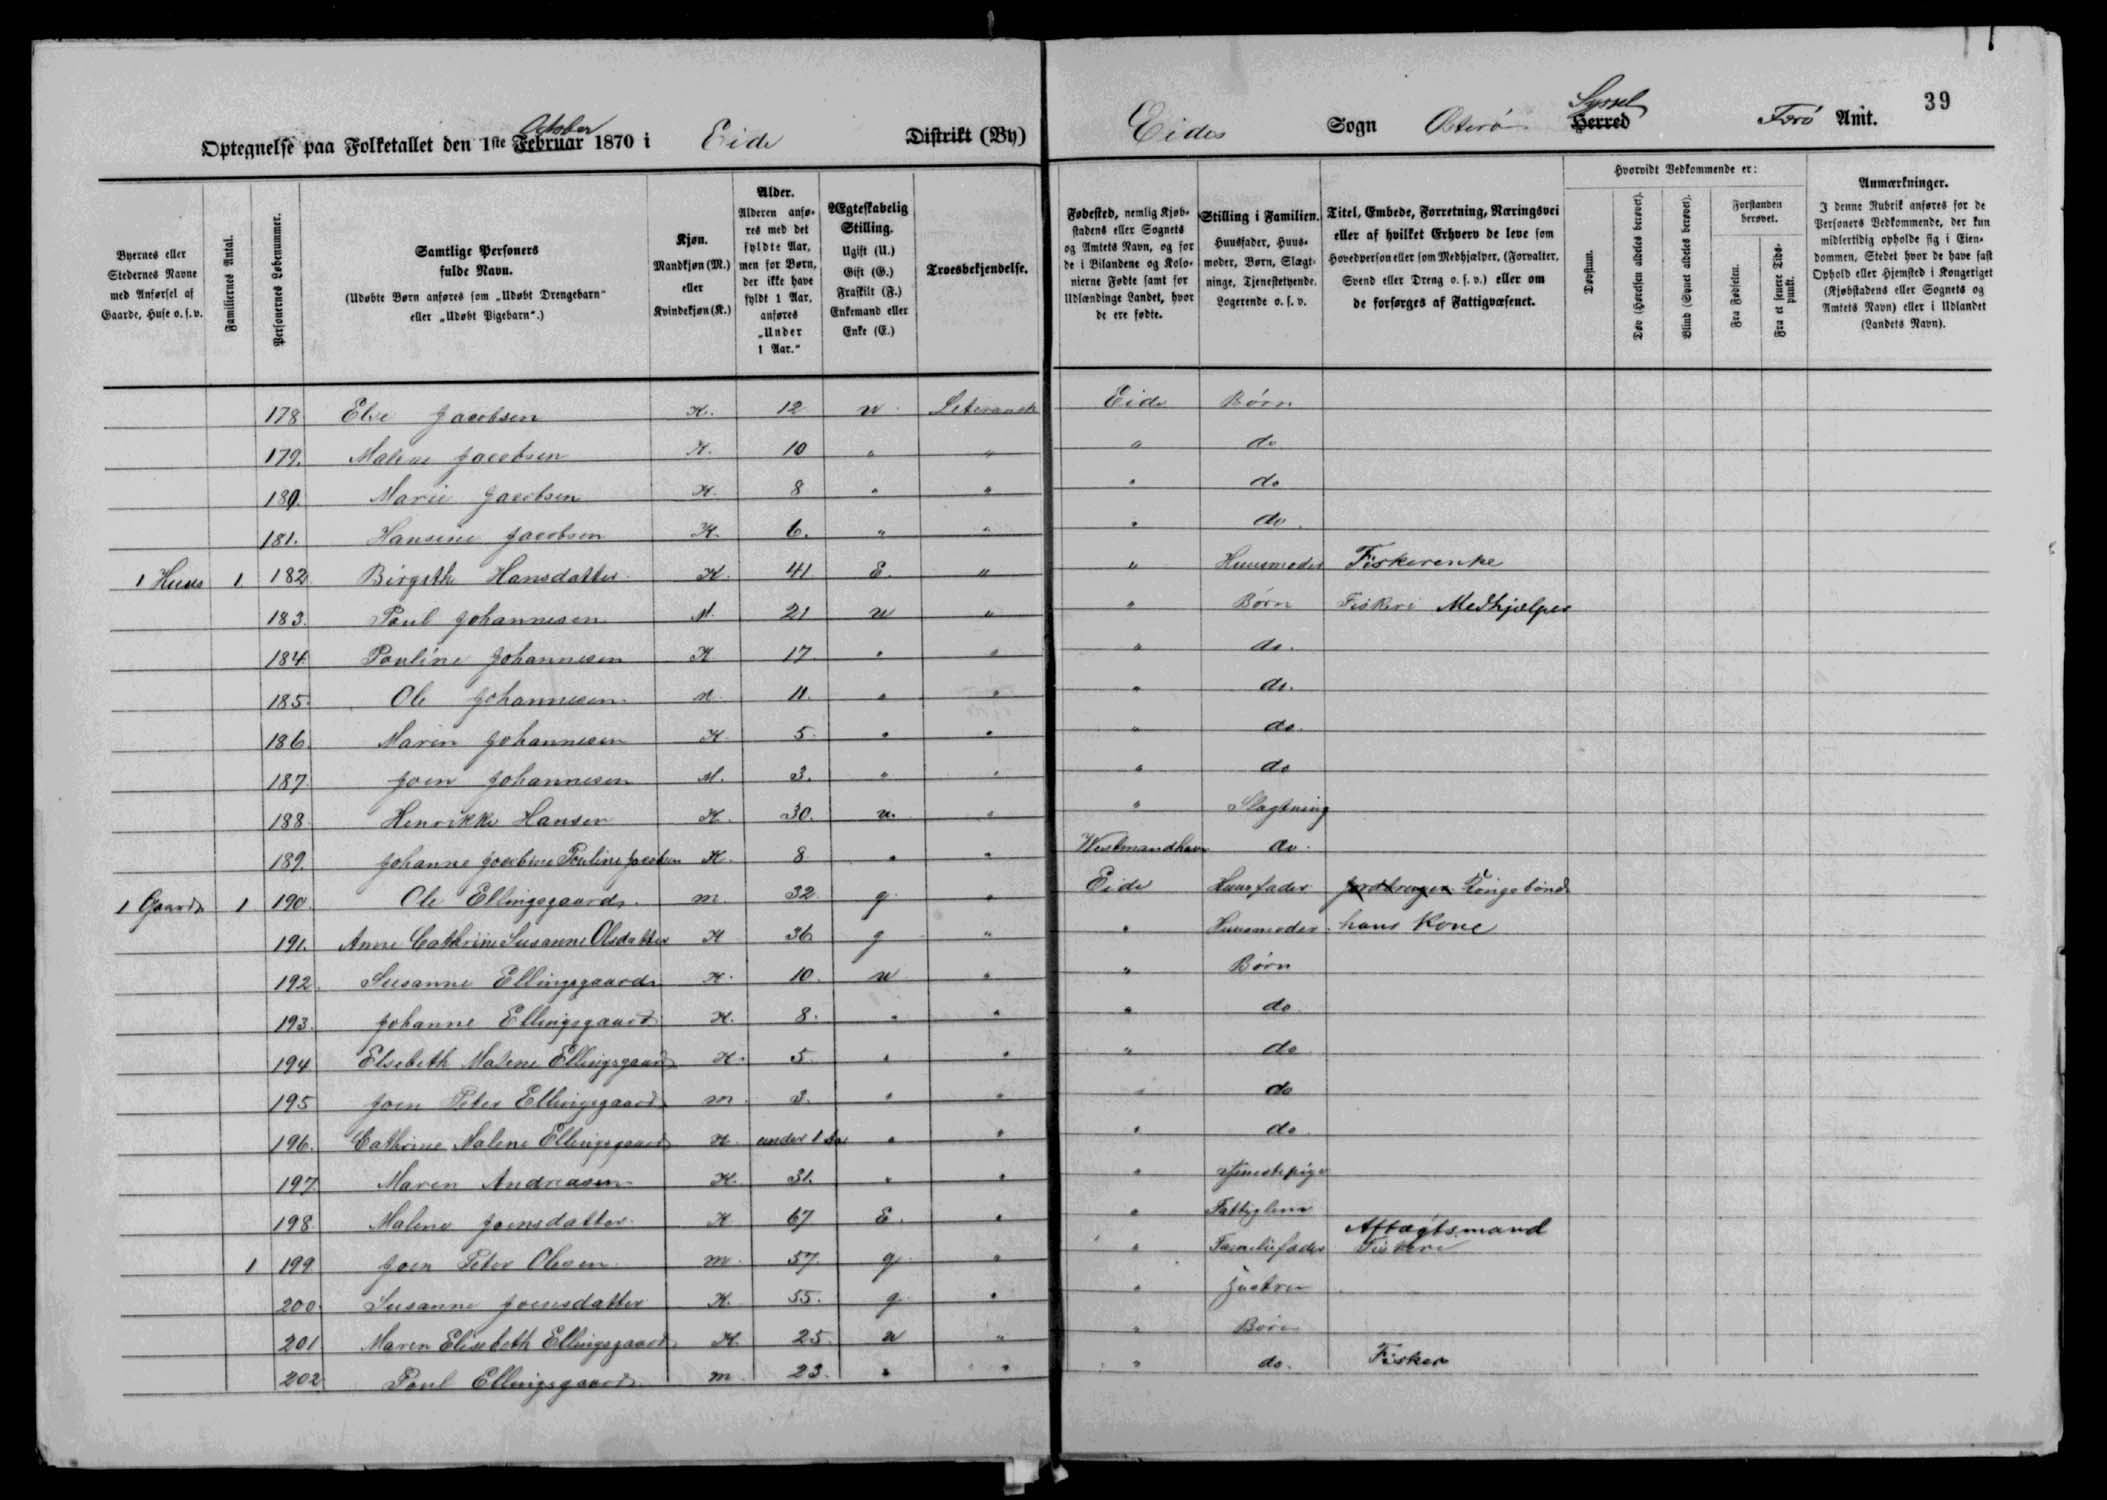 39
Optegnelse paa Folketallet den 1ste Februar October 1870 i Eide Distrikt (By) Eides Sogn Østerø Herred Syssel Færø Amt.
Byernes eller Stedernes Navne med Anførsel af Gaarde, Huse o. s. v.
Familiernes Antal.
Personernes Løbenummer.
Samtlige Personers fulde Navn.
(Udøbte Børn anføres som „Udøbt Drengebarn“ eller „Udøbt Pigebarn“.)
Kjøn. Mandkjøn (M.) eller Kvindekjøn (K.)
Alder. Alderen anføres med det fyldte Aar, men for Børn, der ikke have fyldt 1 Aar, anføres „Under 1 Aar.“
Ægteskabelig Stilling. Ugift (U.) Gift (G.) Fraskilt (F.) Enkemand eller Enke (E.)
Troesbekjendelse.
Fødested, nemlig Kjøbstadens eller Sognets og Amtets Navn, og for de i Bilandene og Kolonierne Fødte samt for Udlændinge Landet, hvor de ere fødte.
Stilling i Familien. Huusfader, Huusmoder, Børn, Slægtninge, Tjenestetyende, Logerende o. s. v.
Titel, Embede, Forretning, Næringsvei eller af hvilket Erhverv de leve som Hovedperson eller som Medhjælper, (Forvalter, Svend eller Dreng o. s. v.) eller om de forsørges af Fattigvæsenet.
Hvorvidt Vedkommende er:
Døvstum.
Døv (Hørelsen aldeles berøvet).
Blind (Synet aldeles berøvet).
Forstanden berøvet.
Fra Fødselen.
Fra et senere Tidspunkt.
Anmærkninger. I denne Rubrik anføres for de Personers Vedkommende, der kun midlertidig opholde sig i Eiendommen, Stedet hvor de have fast Ophold eller Hjemsted i Kongeriget (Kjøbstadens eller Sognets og Amtets Navn) eller i Udlandet (Landets Navn).
178 Else Jacobsen K. 12 u Luteransk Eide Børn
179. Malene Jacobsen K. 10 " " " do
180. Marie Jacobsen K. 8 " " " do
181. Hansine Jacobsen K. 6. " " " do.
1 Huus 1 182. Birgithe Hansdatter K. 41 E. " " Huusmoder Fiskerenke
183. Poul Johannesen M. 21 u " " Børn Fiskeri Medhjælper
184. Pouline Johannesen K 17 " " " do.
185. Ole Johannesen M. 11. " " " do.
186. Maren Johannesen K. 5. " " " do.
187. Joen Johannesen M. 3. " " " do
188 Henrikke Hansen K. 30. u. " " Slægtning
189. Johanne Jacobine Pouline Jacobsen K. 8 " " Westmandhavn do.
1 Gaard 1 190. Ole Ellingsgaard m. 32 g " Eide Huusfader Jordbruger Kongsbonde
191. Anne Cathrine Susanne Olsdatter K 36 g " " Huusmoder hans Kone
192. Susanne Ellingsgaard K. 10. u " " Børn
193. Johanne Ellingsgaard K. 8. " " " do
194 Elsebeth Malene Ellingsgaard K. 5 " " " do
195 Joen Peter Ellingsgaard m. 3. " " " do
196. Cathrine Malene Ellingsgaard K. under 1 Aar " " " do
197 Maren Andreasen K. 31. " " " Tjenestepige
198 Malene Joensdatter K 67 E. " " Fattiglem
1 199 Joen Peter Olesen m. 57. g " " Familiefader Fiskeri Aftægtsmand
200. Susanne Joensdatter K. 55. g " " Hustru
201 Maren Elisebeth Ellingsgaard K 25. u " " Børn
202 Poul Ellingsgaard m 23. " " " do. Fisker